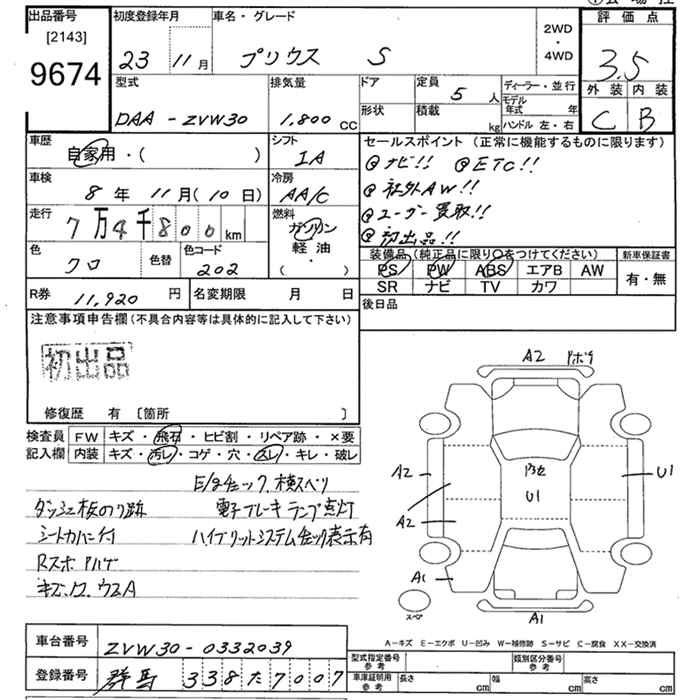 出品番号
[2143]
9674
初度登録年月
23 11月
車名・グレード
プリウス S
2WD
・
4WD
評価点
3.5
外装 内装
C B
型式
DAA-ZVW30
排気量
1,800 CC
ドア
形状
定員
5 人
積載
kg
ディーラー・並行
モデル年式 年
ハンドル 左・右
車歴
自家用・( )
シフト
IA
車検
8年 11月(10日)
冷房
AA/C
走行
7万4千800km
燃料
ガソリン
軽油
( )
色
クロ
色替
色コード
202
R券 11,920 円
名変期限 月 日
セールスポイント(正常に機能するものに限ります)
@ナビ!! @ETC!!
@社外AW!!
@ユーザー買取!!
@初出品!!
装備品(純正品に限り○をつけてください)
PS PW ABS エアB AW
SR ナビ TV カワ
新車保証書
有・無
後日品
注意事項申告欄(不具合内容等は具体的に記入して下さい)
初出品
修復歴 有 [箇所 ]
検査員記入欄
FW キズ・飛石・ヒビ割・リペア跡・×要
内装 キズ・汚レ・コゲ・穴・スレ・キレ・破レ
E/gチェック、検スベリ
ダッシュ板のり跡 電子ブレーキランプ点灯
シートカバー付 ハイブリットシステム
Rスポ
A2
A2
A2
U1
U1
A1
A1
スペア
A-キズ E-エクボ U-凹み W-補修跡 S-サビ C-腐食 XX-交換済
車台番号 ZVW30-0332039
登録番号 群馬 338た7007
型式指定番号 参考
類別区分番号 参考
車庫証明用 参考
長さ cm 幅 cm 高さ cm